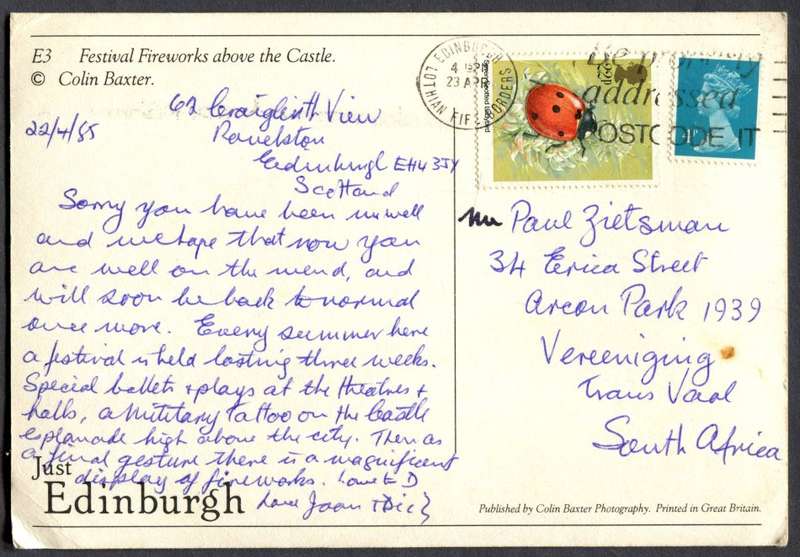 E3 Festival Fireworks above the Castle.
© Colin Baxter.
62 Craigleith View
Ravelston
Edinburgh EH4 3JY
Scotland
22/4/85
Sorry you have been unwell
and we hope that now you
are well on the mend, and
will soon be back to normal
once more. Every summer here
a festival is held lasting three weeks.
Special ballets + plays at the theatres +
halls, a Military Tattoo on the Castle
esplanade high above the city. Then as
a final gesture there is a magnificent
display of fireworks. Love to D
Love Joan + Dick
Just
Edinburgh
EDINBURGH
LOTHIAN FIFE BORDERS
23 APR
Be properly
addressed
POSTCODE IT
Mr Paul Zietsman
34 Erica Street
Arcon Park 1939
Vereeniging
Trans Vaal
South Africa
Published by Colin Baxter Photography. Printed in Great Britain.